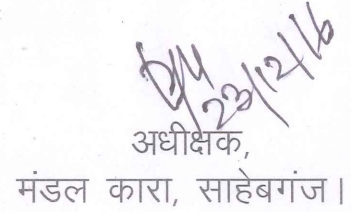 23/12/16
अधीक्षक,
मंडल कारा, साहेबगंज।